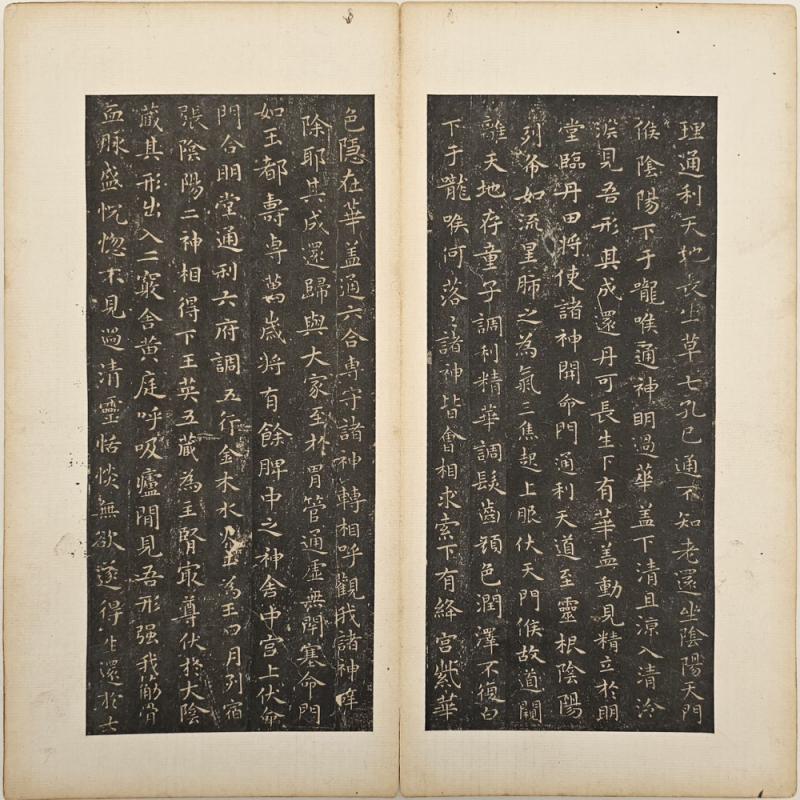 理通利天地長生草七孔已通不知老還坐陰陽天門
候陰陽下于嚨喉通神明過華盖下清且涼入清泠
淵見吾形其成還丹可長生下有華盖動見精立於明
堂臨丹田將使諸神開命門通利天道至靈根陰陽
列布如流星肺之為氣三焦起上服伏天門候故道闚
離天地存童子調利精華調髮齒顏色潤澤不復白
下于嚨喉何落〻諸神皆會相求索下有絳宮紫華
色隱在華盖通六合專守諸神轉相呼觀我諸神辟
除耶其成還歸與大家至於胃管通虛無閉塞命門
如玉都壽專萬歲將有餘脾中之神舍中宮上伏命
門合明堂通利六府調五行金木水火土為王四月列宿
張陰陽二神相得下玉英五藏為主腎最尊伏於大陰
藏其形出入二竅舍黃庭呼吸廬間見吾形强我筋骨
血脉盛恍惚不見過清靈恬惔無欲遂得生還於七